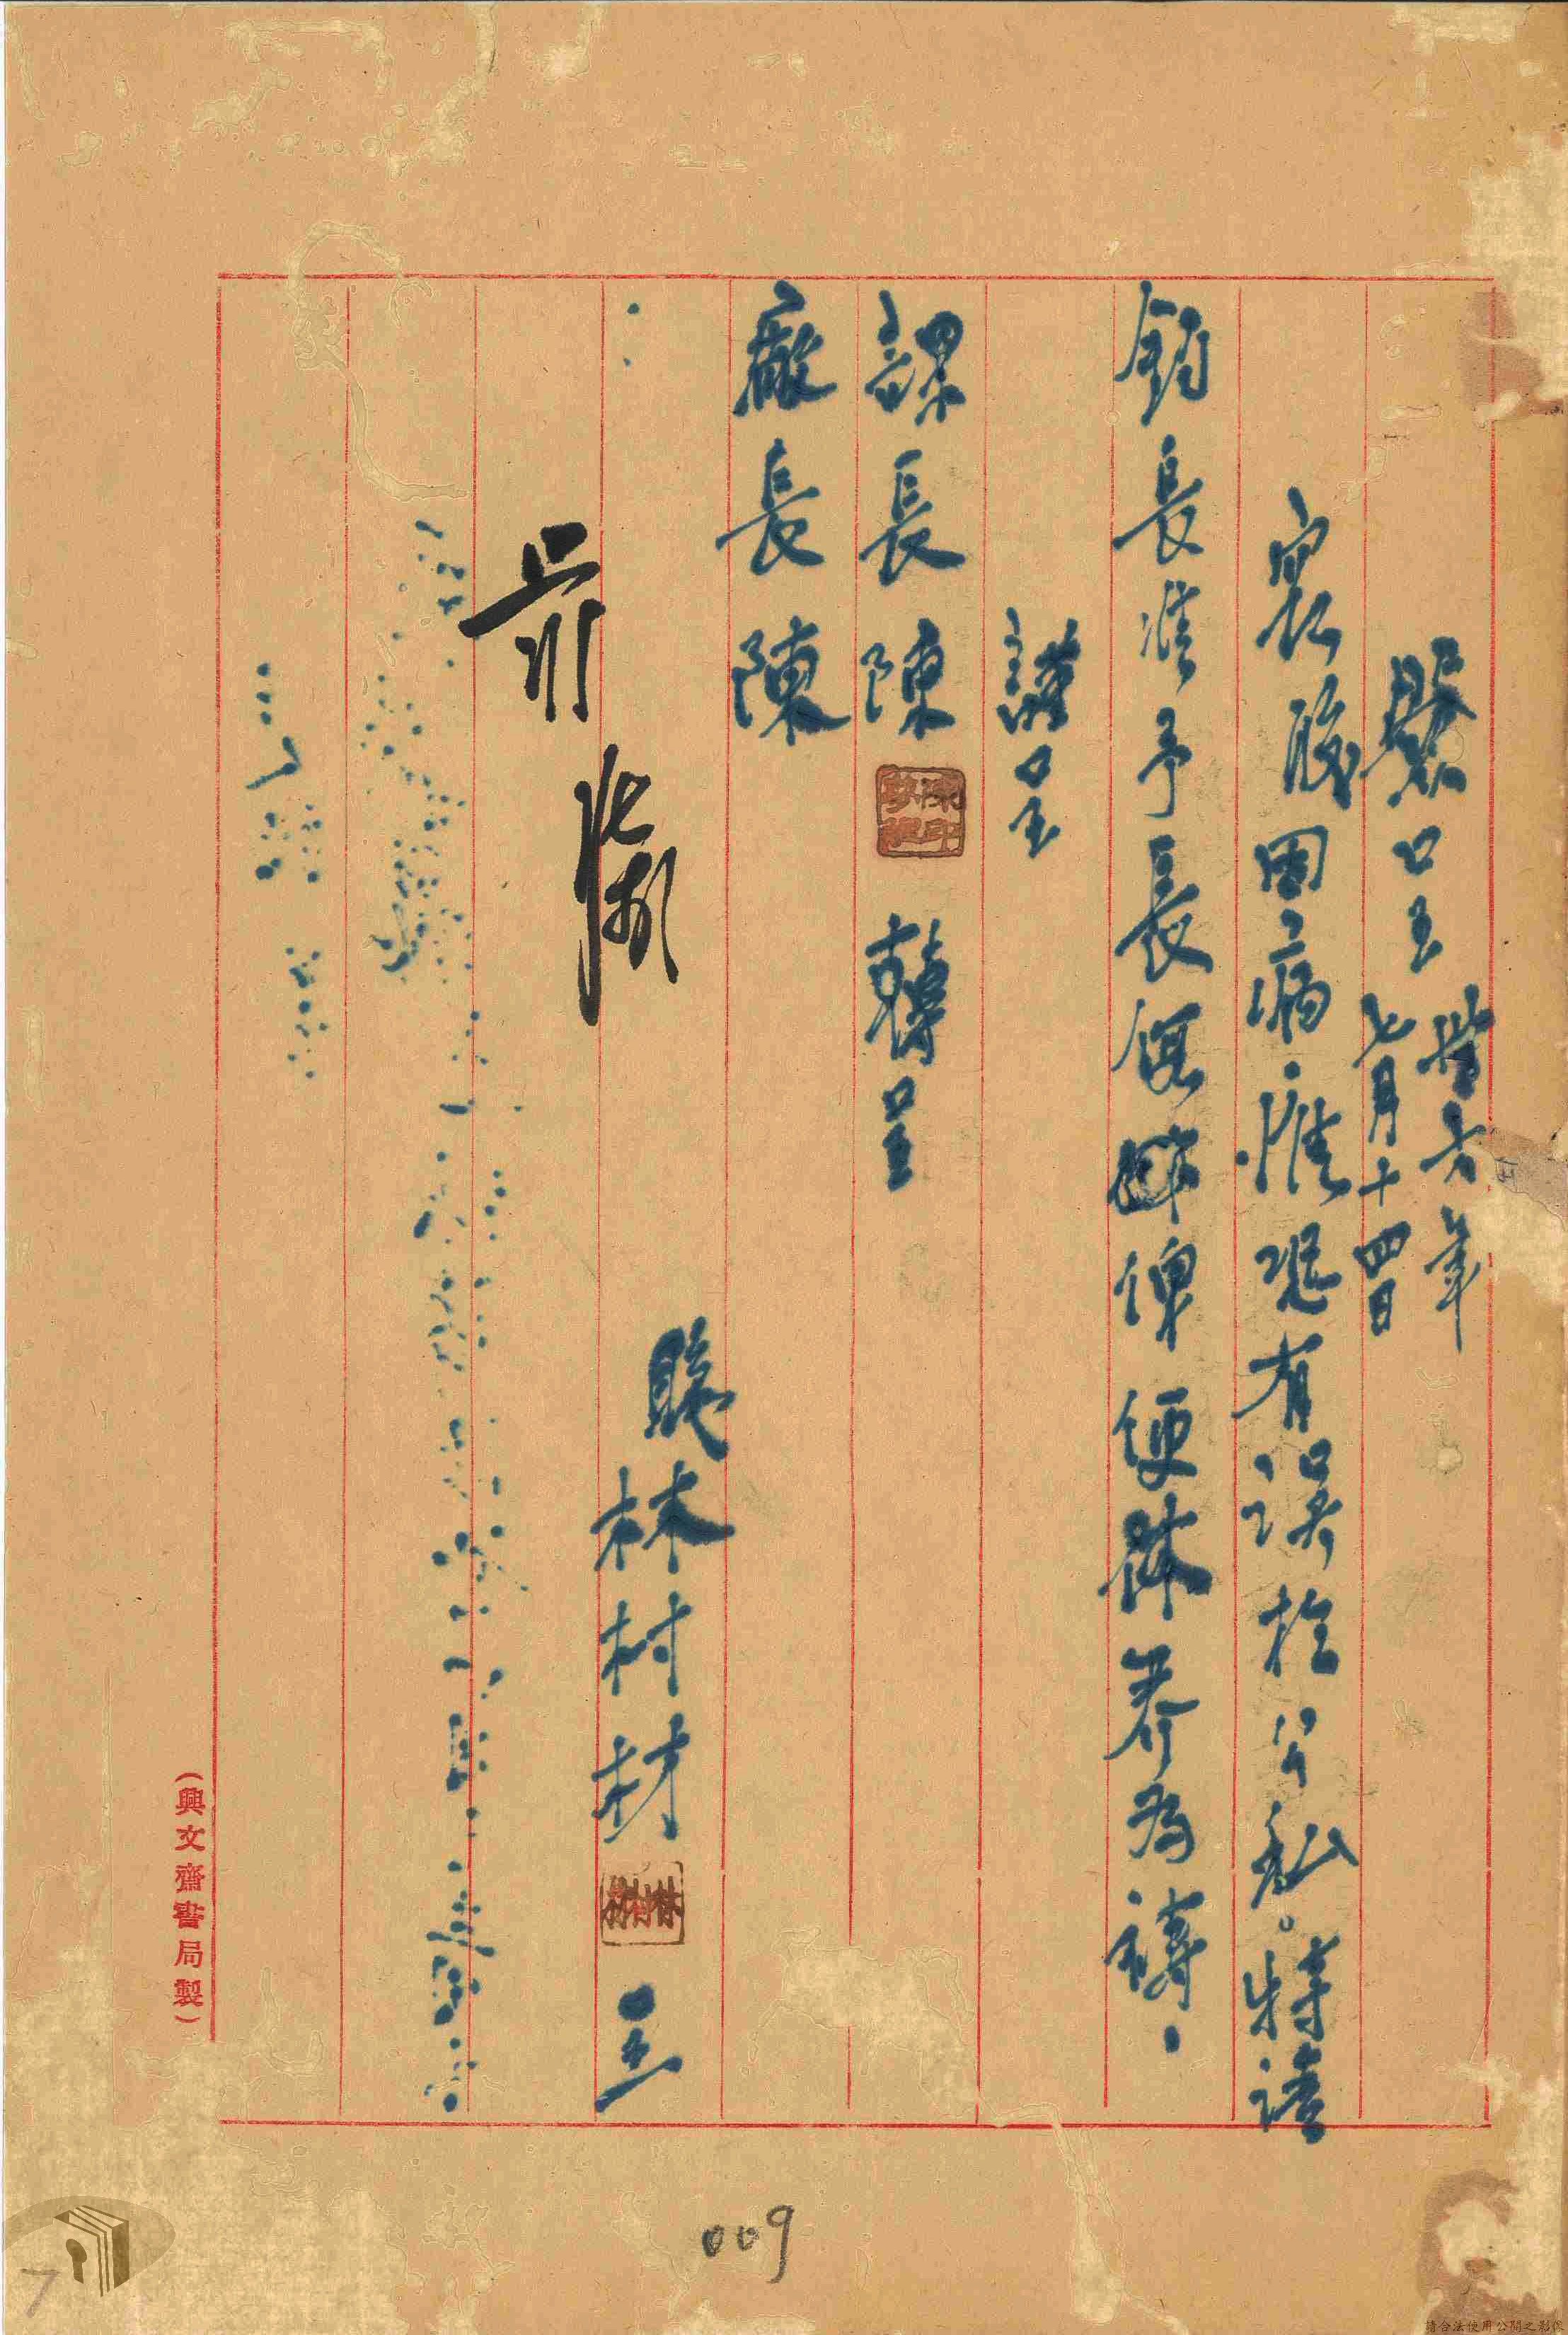 呈 卅六年
七月十四日
職因病 恐有誤於公私。特請
鈞長准予長假 俾便休養為禱、
謹呈
課長陳 轉呈
廠長陳
職林村材 林村材 呈
(興文齋書局製)
009
7
請合法使用公開之影像